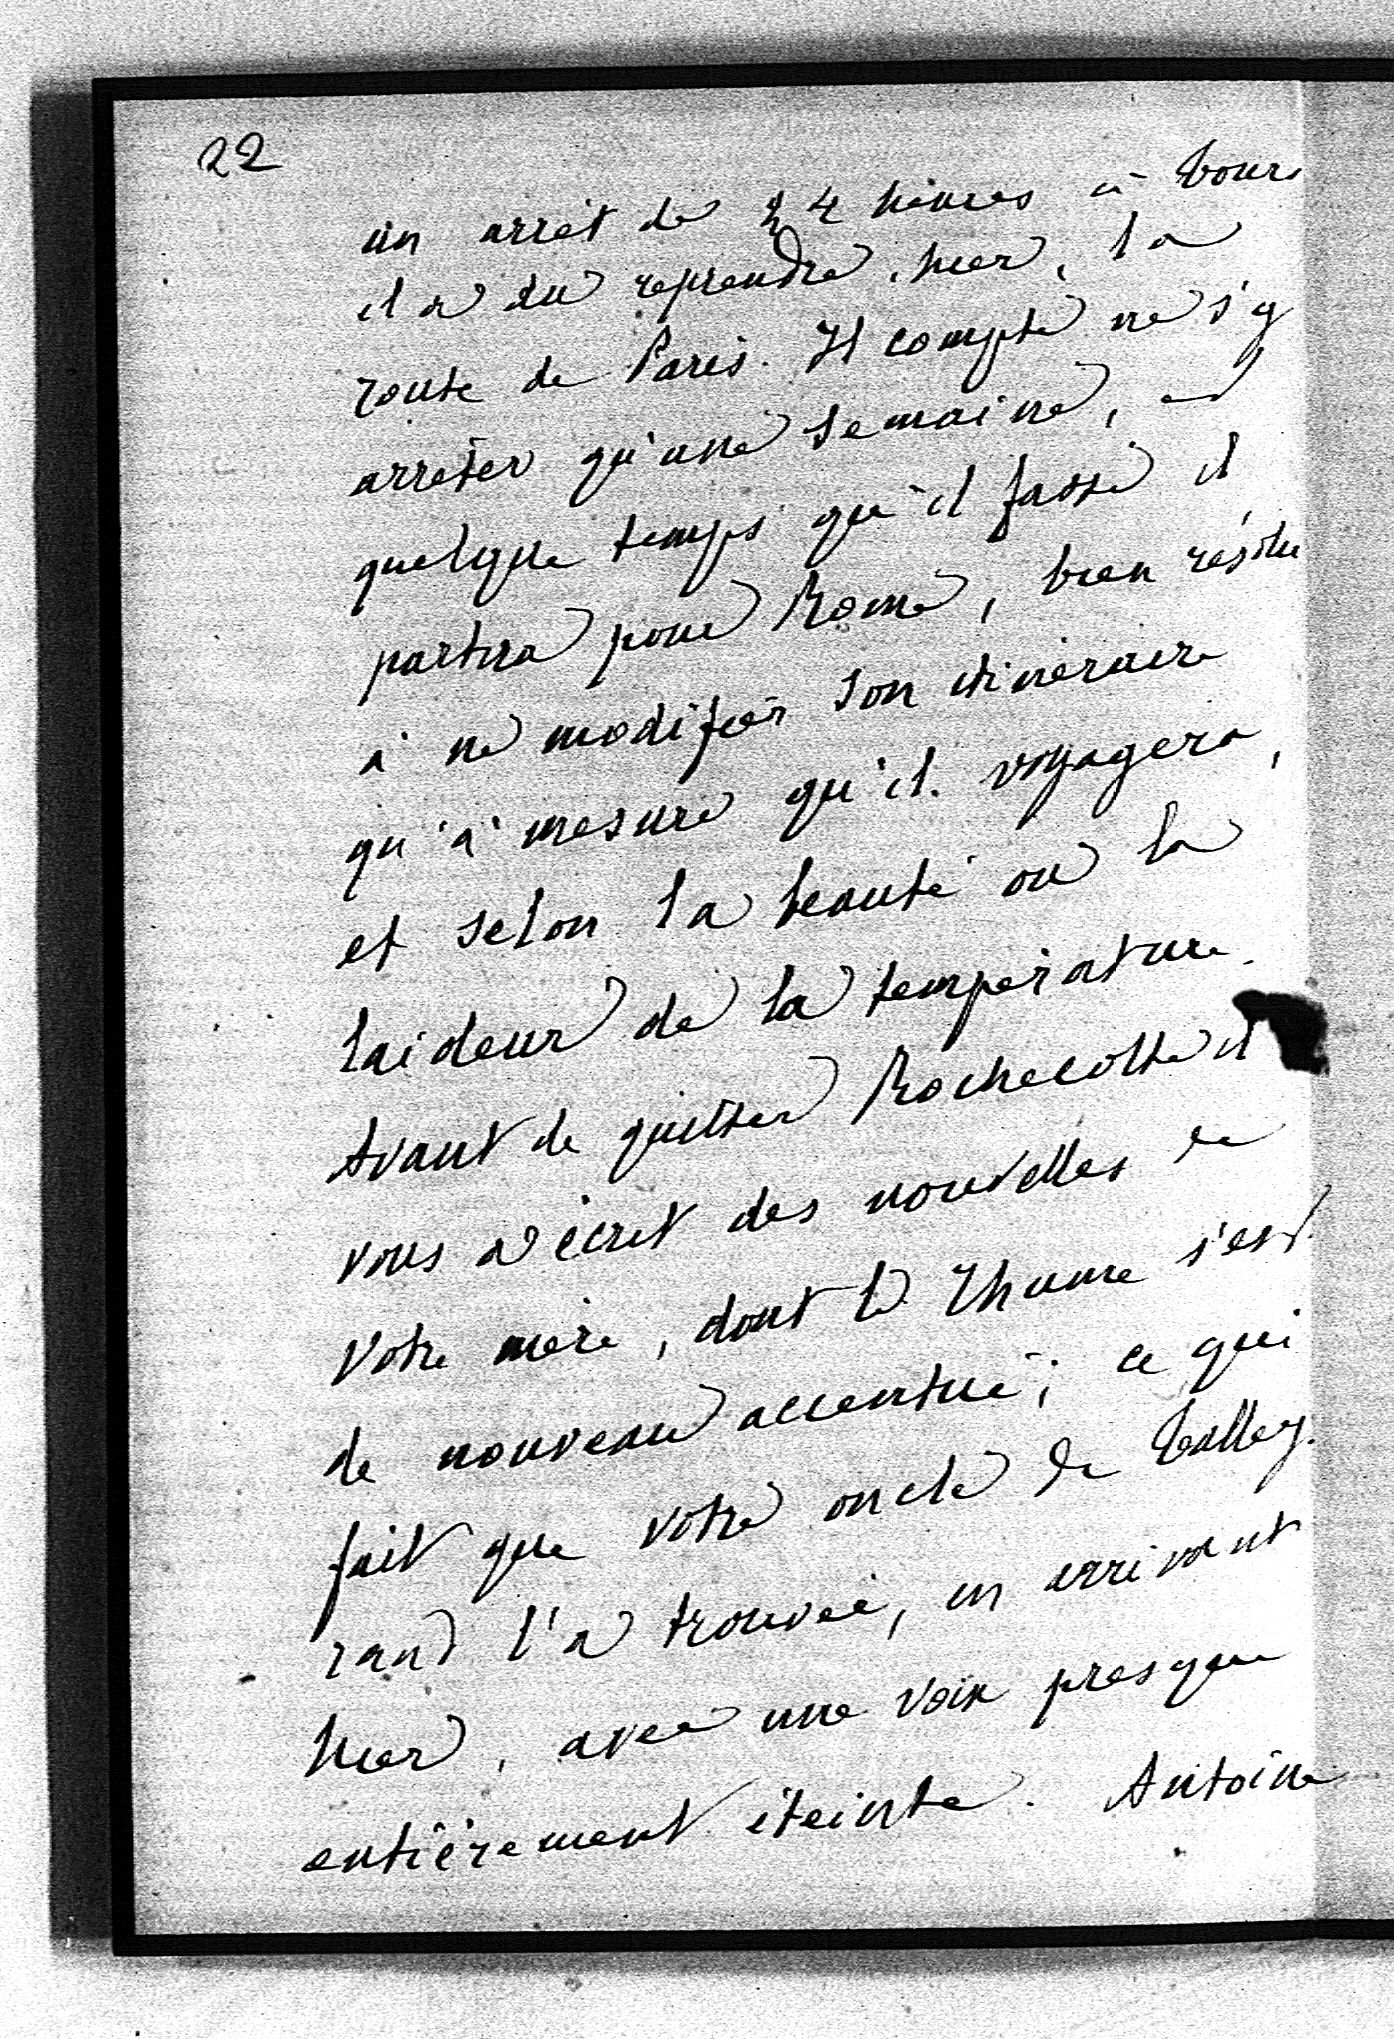 22
un arrêt de 24 heures à Tours
il a du reprendre, hier, la
route de Paris. Il compte ne s'y
arrêter qu'une semaine, et
quelque temps qu'il fasse il
partira pour Rome, bien résolu
à ne modifier son itinéraire
qu'à mesure qu'il voyagera,
et selon la beauté ou la
laideur de la température.
Avant de quitter Rochecotte il
vous a écrit des nouvelles de
votre mère, dont le rhume s'est
de nouveau accentué; ce qui
fait que votre oncle de Talley-
rand l'a trouvée, en arrivant
hier, avec une voix presque
entièrement éteinte. Antoine